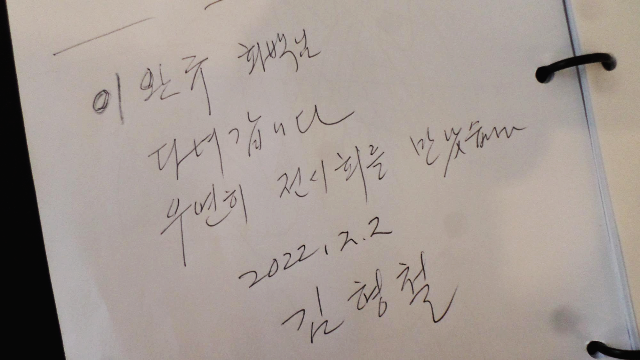 이완주 화백님
다녀갑니다
우연히 전시회를 만났습니다
2022.2.2
김형철